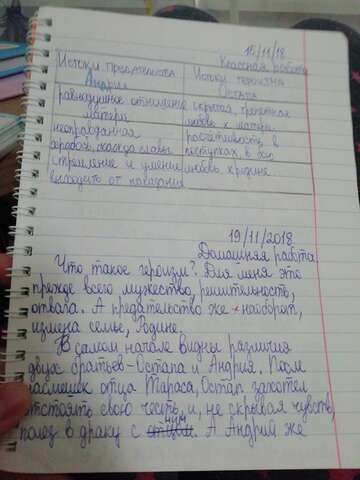 15/11/18
Классная работа
Истоки предательства Андрия
Истоки героизма Остапа
равнодушное отношение матери
скрытая, трепетная любовь к матери
неоправданная
жажда славы
расчетливость в поступках, в бою
стремление и умение
уходить от наказания
любовь к родине
19/11/2018
Домашняя работа
Что такое героизм? Для меня это
прежде всего мужество, решительность,
отвага. А предательство же - наоборот,
измена семье, Родине.
В самом начале видны различия
двух братьев-Остапа и Андрия. После
насмешек отца Тараса, Остап захотел
отстоять свою честь, и, не скрывая чувств,
полез в драку с ним. А Андрий же